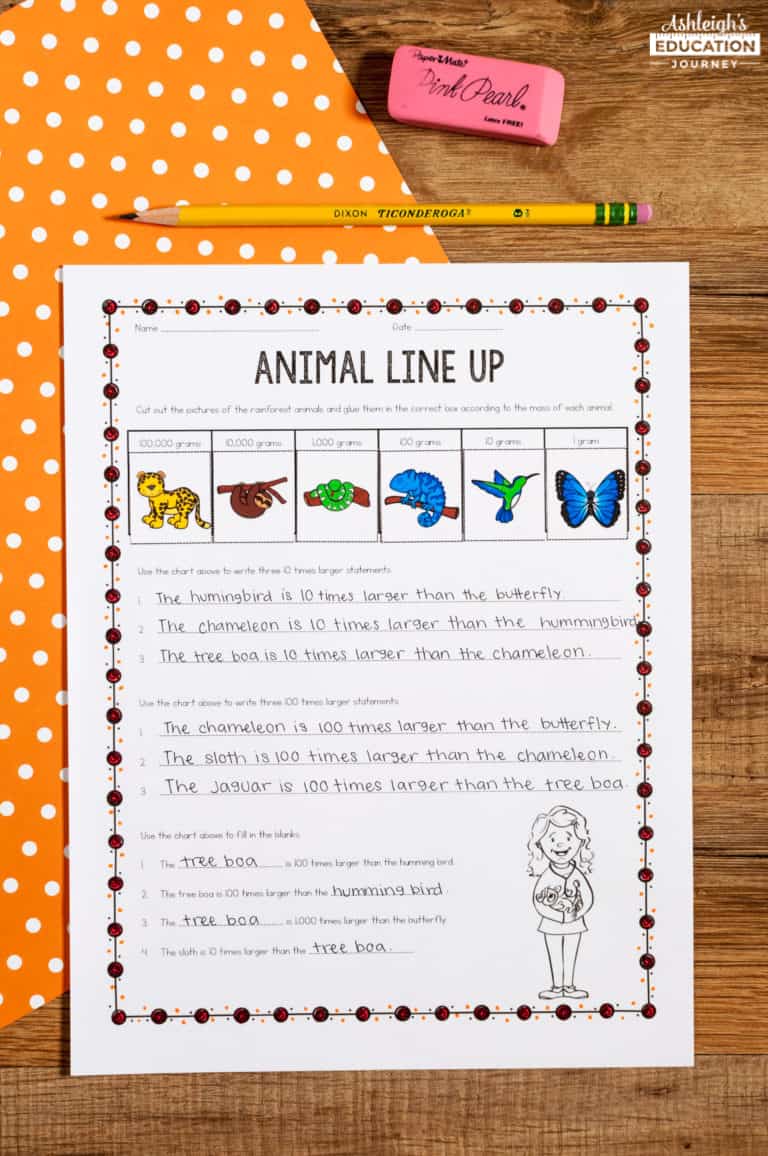 Ashleigh's
EDUCATION
JOURNEY
Paper Mate
Pink Pearl
Latex FREE!
DIXON TICONDEROGA
Name
Date
ANIMAL LINE UP
Cut out the pictures of the rainforest animals and glue them in the correct box according to the mass of each animal.
100,000 grams 10,000 grams 1,000 grams 100 grams 10 grams 1 gram
Use the chart above to write three 10 times larger statements.
1. The humingbird is 10 times larger than the butterfly.
2. The chameleon is 10 times larger than the hummingbird.
3. The tree boa is 10 times larger than the chameleon.
Use the chart above to write three 100 times larger statements.
1. The chameleon is 100 times larger than the butterfly.
2. The sloth is 100 times larger than the chameleon.
3. The Jaguar is 100 times larger than the tree boa.
Use the chart above to fill in the blanks.
1. The tree boa is 100 times larger than the humming bird.
2. The tree boa is 100 times larger than the humming bird.
3. The tree boa is 1,000 times larger than the butterfly.
4. The sloth is 10 times larger than the tree boa.